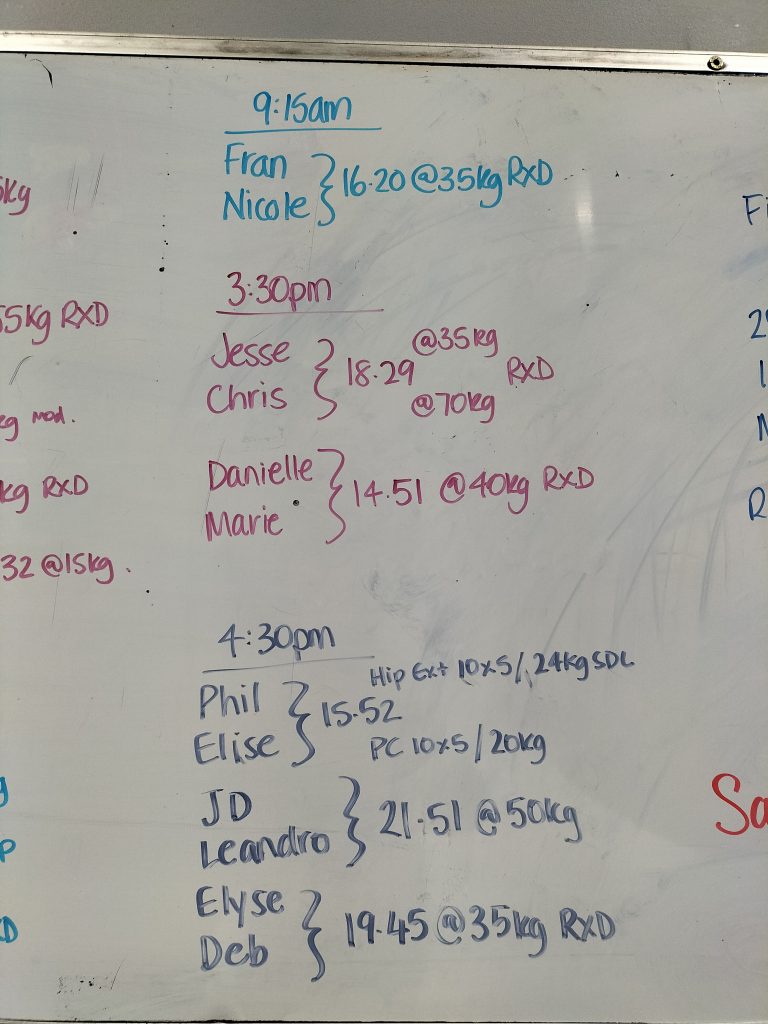 9:15am
Fran
Nicole } 16.20 @35kg RXD
3:30pm
Jesse
Chris } 18.29 @35kg @70kg RXD
Danielle
Marie } 14.51 @40kg RXD
4:30pm
Phil
Elise } 15.52 Hip Ext 10x5/, 24kg SDL
PC 10x5/20kg
JD
Leandro } 21.51 @50kg
Elyse
Deb } 19.45 @35kg RXD
kg
55kg RXD
kg mod.
kg RXD
32 @15kg.